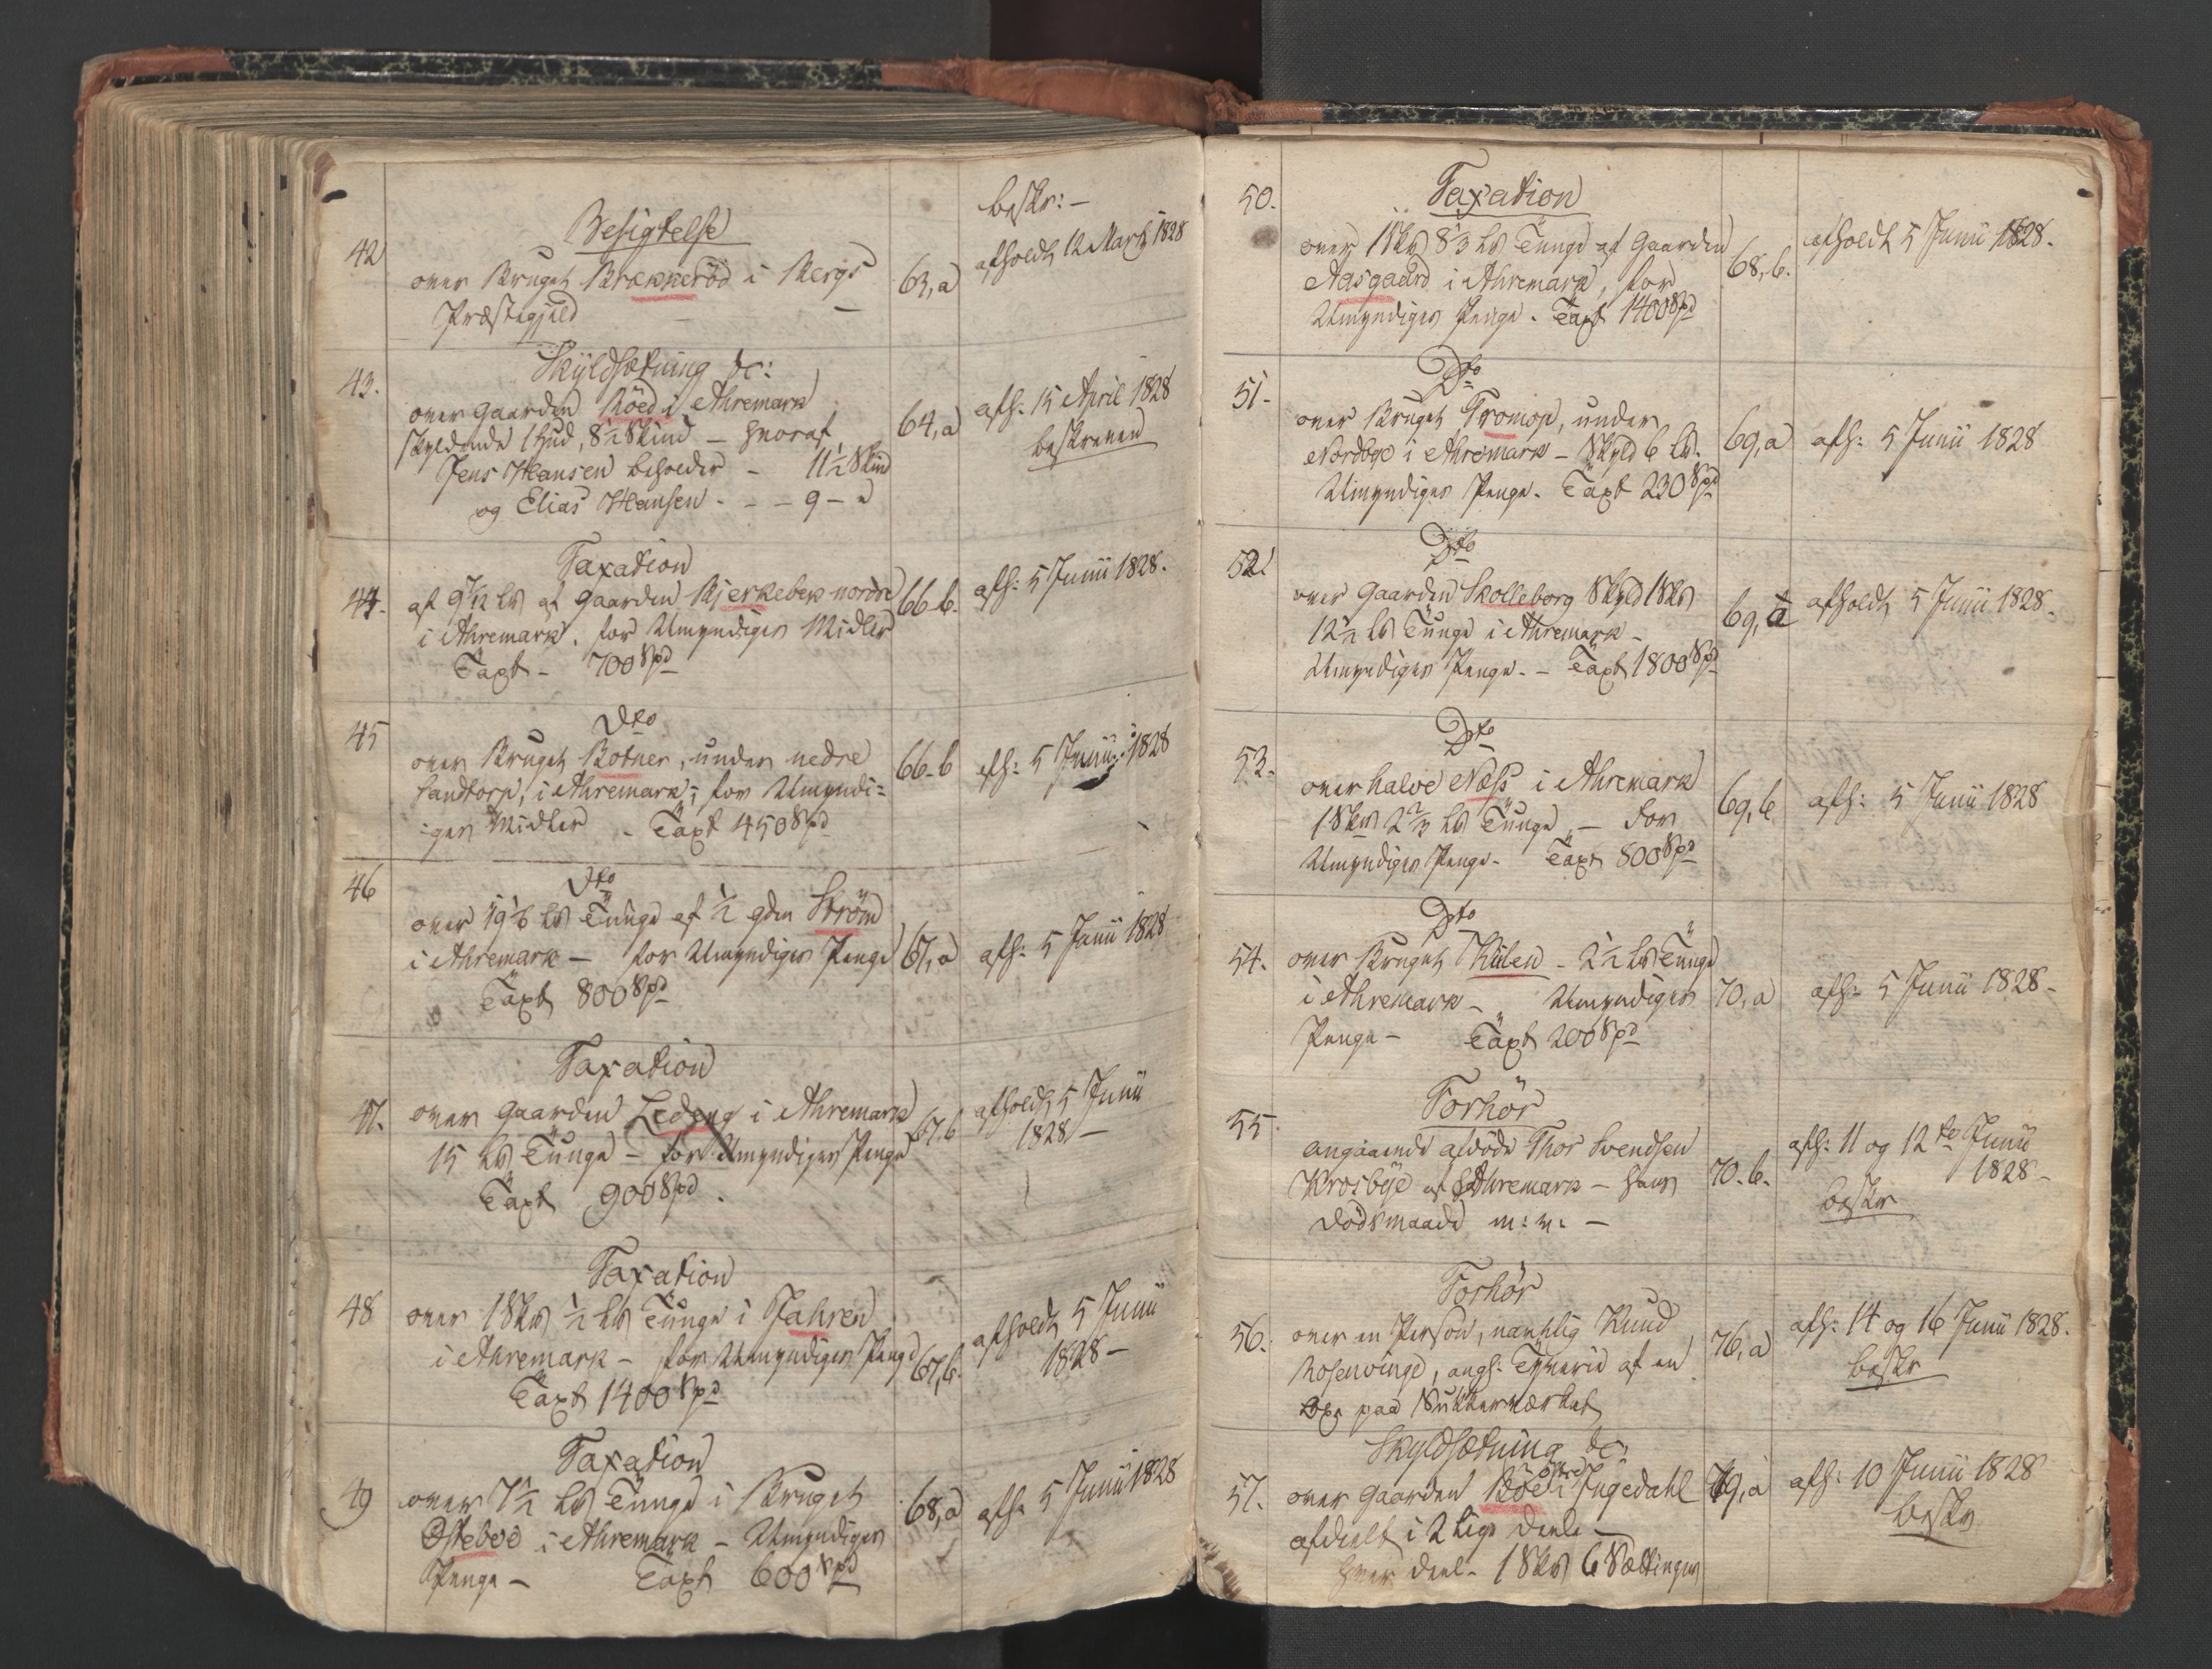 beskr: –
Besigtelse
42
over Bruget Brekkeröd i Bergs
Præstegjeld –
63, a
afholdt 12 Marti 1828
Skyldsætning &c:
43.
over Gaarden Röed i Ahremark
skyldende 1 hud, 8½ Skind – hvoraf
Jens Hansen beholder – 11½ Skind
og Elias Hansen . – – 9 – "
64, a
afh: 15 April 1828
beskreven
Taxation
44.
af 9 7/12 Lb af Gaarden Bjerkebek nordre
i Ahremark. for Umyndiges Midler
Taxt – 700 Spd
66 b.
afh: 5 Junii 1828.
Dto
45
over Bruget Botner, under nedre
Sandtorp, i Ahremark; for Umyndi=
iges Midler – Taxt 450 Spd
66-b
afh: 5 Junii 1828
Dto
46
over 19⅙ Lb Tunge af ½ gdn Ström
i Ahremark – for Umyndiges Penge
Taxt 800 Spd
67, a
afh: 5 Junii 1828
Taxation
47.
over Gaarden Ledeng i Ahremark
15 Lb Tunge – for Umyndiges Penge
Taxt 900 Spd.
67. b
afholdt 5 Junii
1828 –
Taxation
48
over 1 Skb ½ Lb Tunge i Jahren
i Ahremark – for Umyndiges Penge
Taxt 1400 Spd
67, b.
afholdt 5 Junii
1828 –
Taxation
49
over 7½ Lb Tunge i Bruget
Östeböe i Ahremark – Umyndiges
Penge – Taxt 600 Spd
68, a
afh: 5 Junii 1828
50.
Taxation
over 1 Skb 8⅓ Lb Tunge af Gaarden
Aasgaard i Ahremark, for
Umyndiges Penge. Taxt 1400 Spd
68, b.
afholdt 5 Junii 1828.
Dto
51-
over Bruget Tromop, under
Nordbye i Ahremark – Skyld 6 Lb.
Umyndiges Penge. Taxt 230 Spd
69, a
afh: 5 Junii 1828
Dto
52.
over Gaarden Skolleborg Skyld 1 Skb
12½ Lb Tunge i Ahremark –
Umyndiges Penge. – Taxt 1800 Spd
69, a
afholdt 5 Junii 1828.
Dto
53.
over halve Næss i Ahremark
1 Skb 2⅔ Lb Tunge – for
Umyndiges Penge – Taxt 800 Spd
69, b
afh: 5 Junii 1828
Dto
54.
over Bruget Kulen – 2½ Lb Tunge
i Ahremark – Umyndiges
Penge – Taxt 200 Spd
70, a
afh: 5 Junii 1828 –
Forhör
55.
angaaende afdöde Thor Svendsen
Krosbye af Ahremark – hans
Dödsmaade m: v: –
70. b.
afh: 11 og 12te Junii
1828 –
beskr
Forhör
56.
over en Person, navnlig Knud
Rosenvinge, angh: Tyverie af en
paa Sukkerværket
76, a
afh: 14 og 16 Junii 1828.
beskr
Skyldsætning &c:
57.
over Gaarden Böe i Ingedahl
afdeelt i 2 lige deele –
hver deel – 1 Skb 6 Sættinger
79, a
afh: 10 Junii 1828
beskr